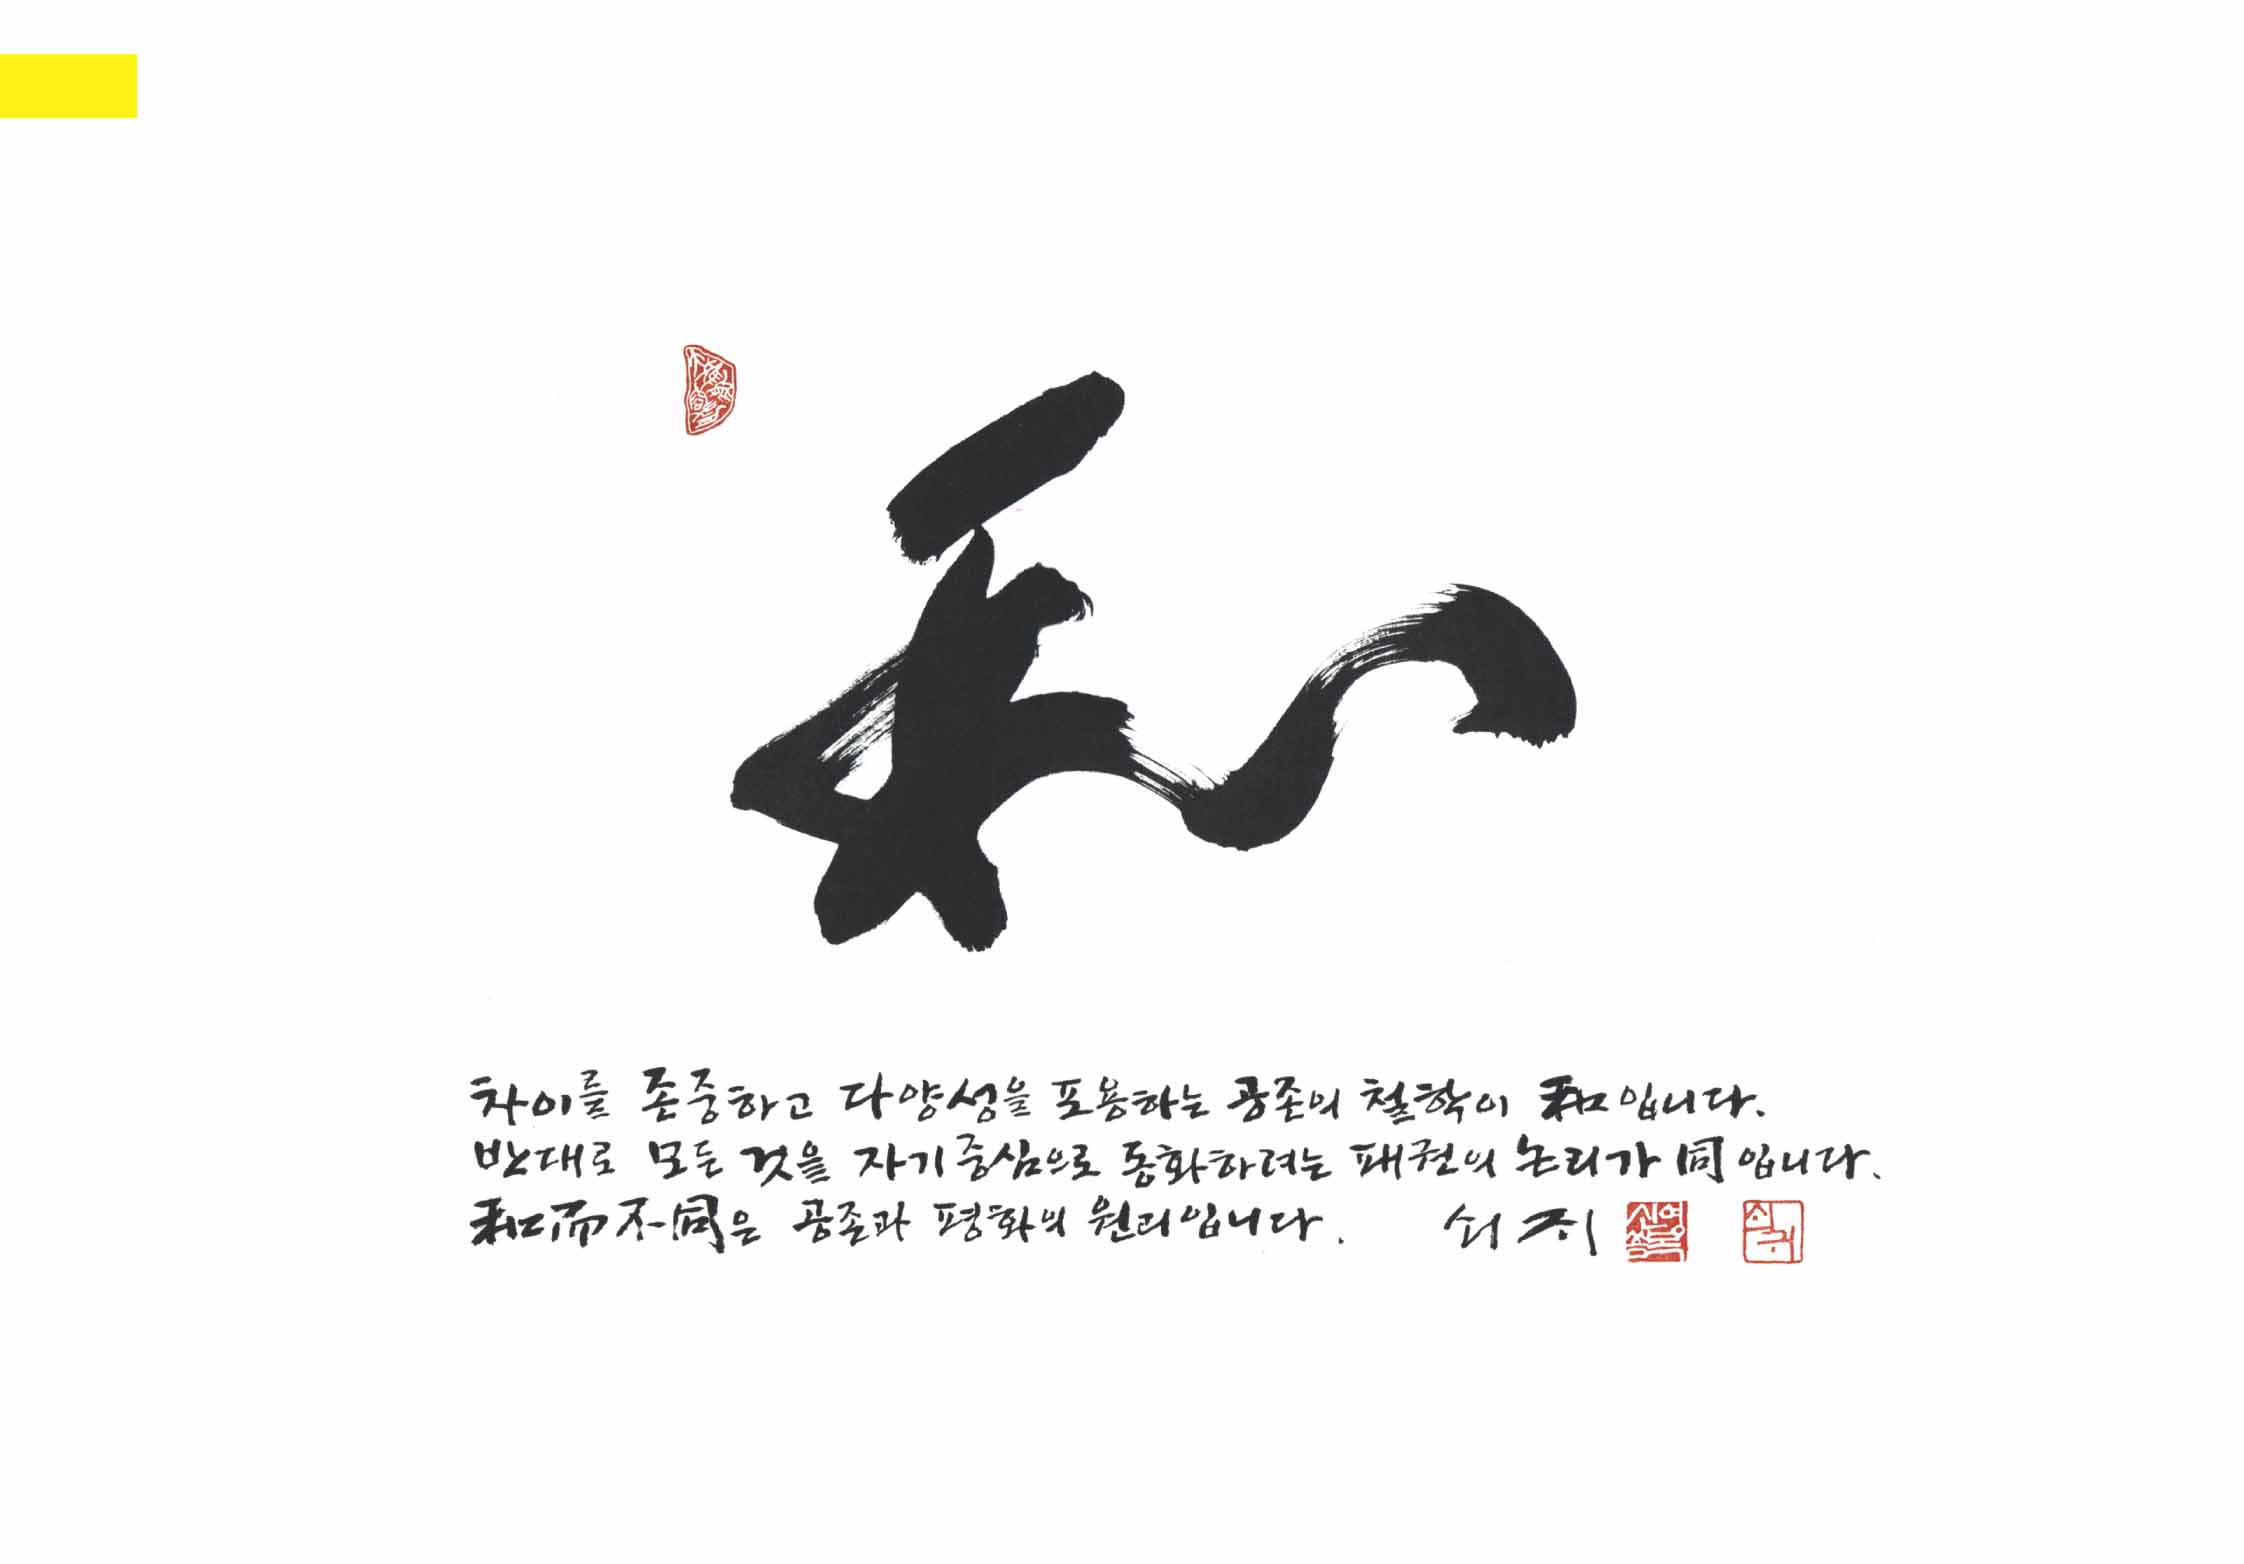 和
차이를 존중하고 다양성을 포용하는 공존의 철학이 和입니다.
반대로 모든 것을 자기중심으로 동화하려는 패권의 논리가 同입니다.
和而不同은 공존과 평화의 원리입니다. 쇠귀 신영복